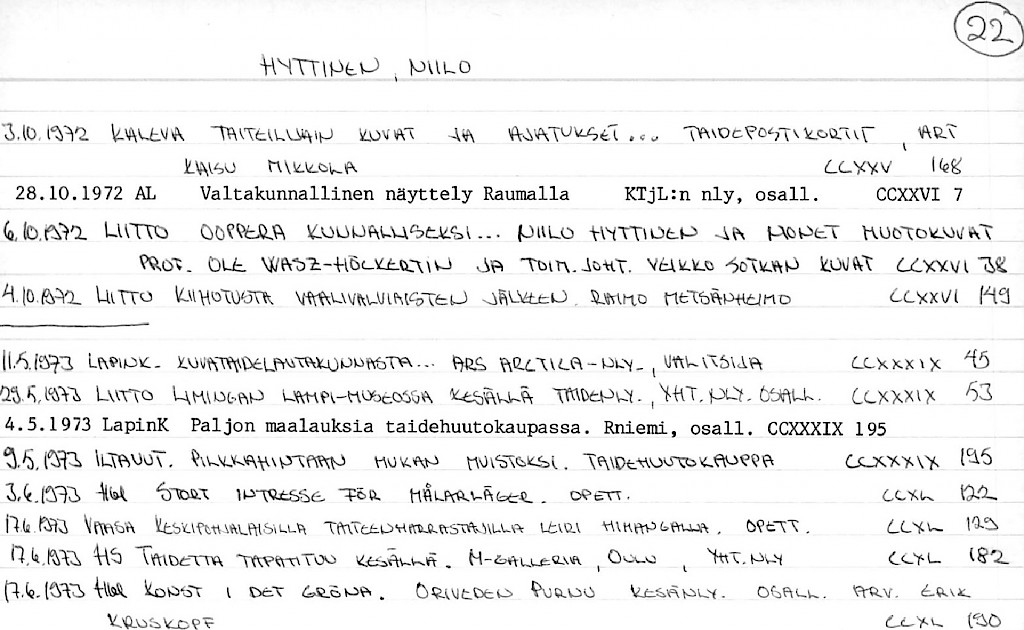 22
HYTTINEN, NIILO
3.10.1972 KALEVA TAITEILIJAIN KUVAT JA AJATUKSET... TAIDEPOSTIKORTIT, ART
KAISU MIKKOLA CCXXV 168
28.10.1972 AL Valtakunnallinen näyttely Raumalla KTjL:n nly, osall. CCXXVI 7
6.10.1972 LIITTO OOPPERA KUNNALLISEKSI... NIILO HYTTINEN JA MONET MUOTOKUVAT
PROF. OLE WASZ-HÖCKERTIN JA TOIM.JOHT. VEIKKO SOTKAN KUVAT CCXXVI 38
4.10.1972 LIITTO KIIHOTUSTA VAALIVALVIAISTEN JÄLKEEN. RAIMO METSÄNHEIMO CCXXVI 149
11.5.1973 LAPINK. KUVATAIDELAUTAKUNNASTA... ARS ARCTICA-NLY., VALITSIJA CCXXXIX 45
29.5.1973 LIITTO LIMINGAN LAMPI-MUSEOSSA KESÄLLÄ TAIDENLY., YHT.NLY. OSALL. CCXXXIX 53
4.5.1973 LapinK Paljon maalauksia taidehuutokaupassa. Rniemi, osall. CCXXXIX 195
9.5.1973 ILTAUUT. PILKKAHINTAAN MUKAN MUISTOKSI. TAIDEHUUTOKAUPPA CCXXXIX 195
3.6.1973 Hbl STORT INTRESSE FÖR MÅLARLÄGER. OPETT. CCXL 122
17.6.1973 VAASA KESKIPOHJALAISILLA TAITEENHARRASTAJILLA LEIRI HIMANGALLA. OPETT. CCXL 129
17.6.1973 HS TAIDETTA TAPATITUU KESÄLLÄ. M-GALLERIA, OULU, YHT.NLY CCXL 182
17.6.1973 Hbl KONST I DET GRÖNA. ORIVEDEN PURNU KESÄNLY. OSALL. ARV. ERIK
KRUSKOPF CCXL 190